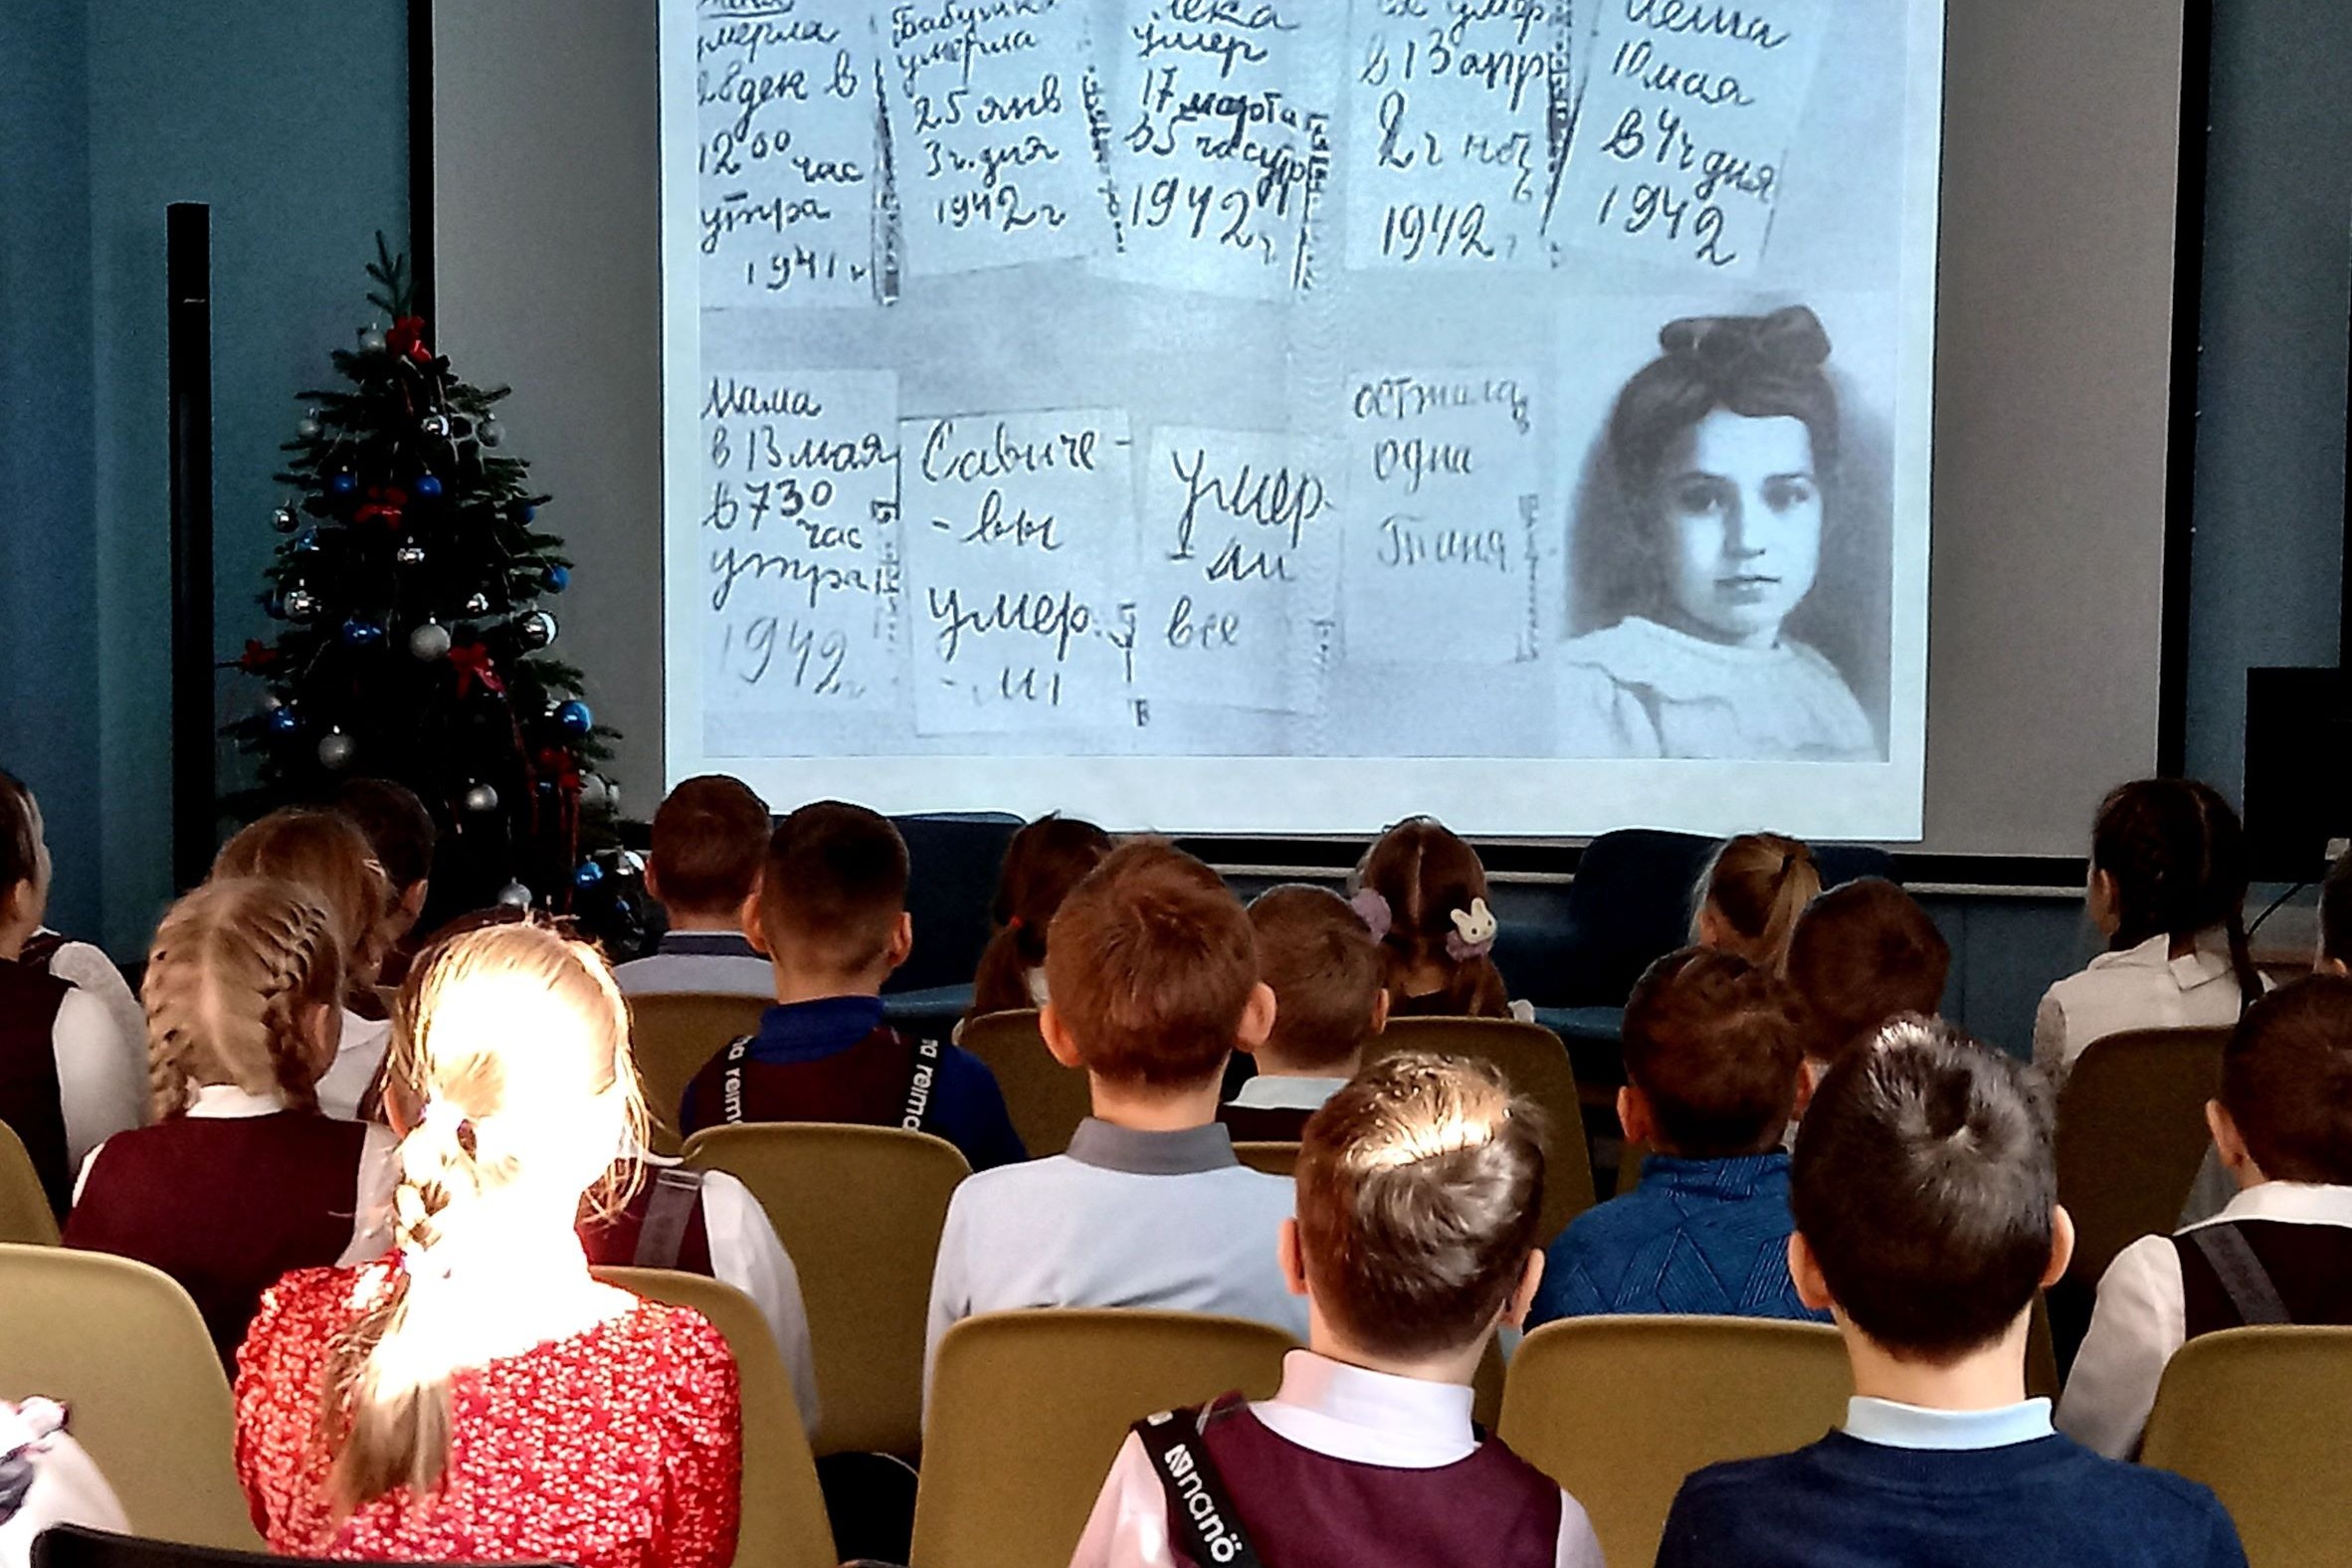 умерла
28 ден в
12 00 час
утра
1941 г
Бабушка
умерла
25 янв
3 ч. дня
1942 г
Лека
умер
17 марта
в 5 час утр
1942 г
умер
в 13 апр
2 ч ноч
1942 г
Леша
10 мая
в 4 ч дня
1942
Мама
в 13 мая
в 730
час
утра
1942 г
Савиче-
-вы
умер.
-ли
В
умер-
-ли
все
осталась
одна
Таня
reima
reima
nanö